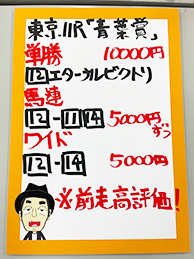 東京11R「青葉賞」
単勝 10000円
12エターナルビクトリ
馬連
12-11 14 5000円ずつ
ワイド
12-14 5000円
※前走高評価!